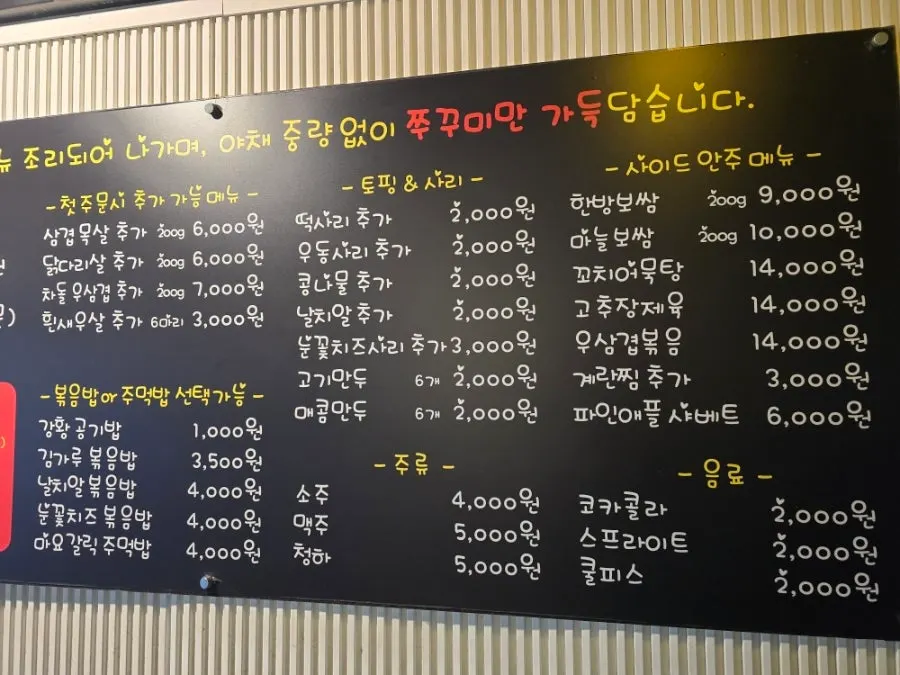 뉴 조리되어 나가며, 야채 중량 없이 쭈꾸미만 가득담습니다.
- 첫 주문시 추가 가능 메뉴 -
삼겹 목살 추가 200g 6,000원
닭다리살 추가 200g 6,000원
차돌 우삼겹 추가 200g 7,000원
흰새우살 추가 6마리 3,000원
- 볶음밥 or 주먹밥 선택가능 -
강황 공기밥 1,000원
김가루 볶음밥 3,500원
날치알 볶음밥 4,000원
눈꽃치즈 볶음밥 4,000원
마요갈릭 주먹밥 4,000원
- 토핑 & 사리 -
떡사리 추가 2,000원
우동사리 추가 2,000원
콩나물 추가 2,000원
날치알 추가 2,000원
눈꽃치즈사리 추가 3,000원
고기만두 6개 2,000원
매콤만두 6개 2,000원
- 주류 -
소주 4,000원
맥주 5,000원
청하 5,000원
- 사이드 안주 메뉴 -
한방보쌈 200g 9,000원
마늘보쌈 200g 10,000원
꼬치어묵탕 14,000원
고추장제육 14,000원
우삼겹볶음 14,000원
계란찜 추가 3,000원
파인애플 샤베트 6,000원
- 음료 -
코카콜라 2,000원
스프라이트 2,000원
쿨피스 2,000원